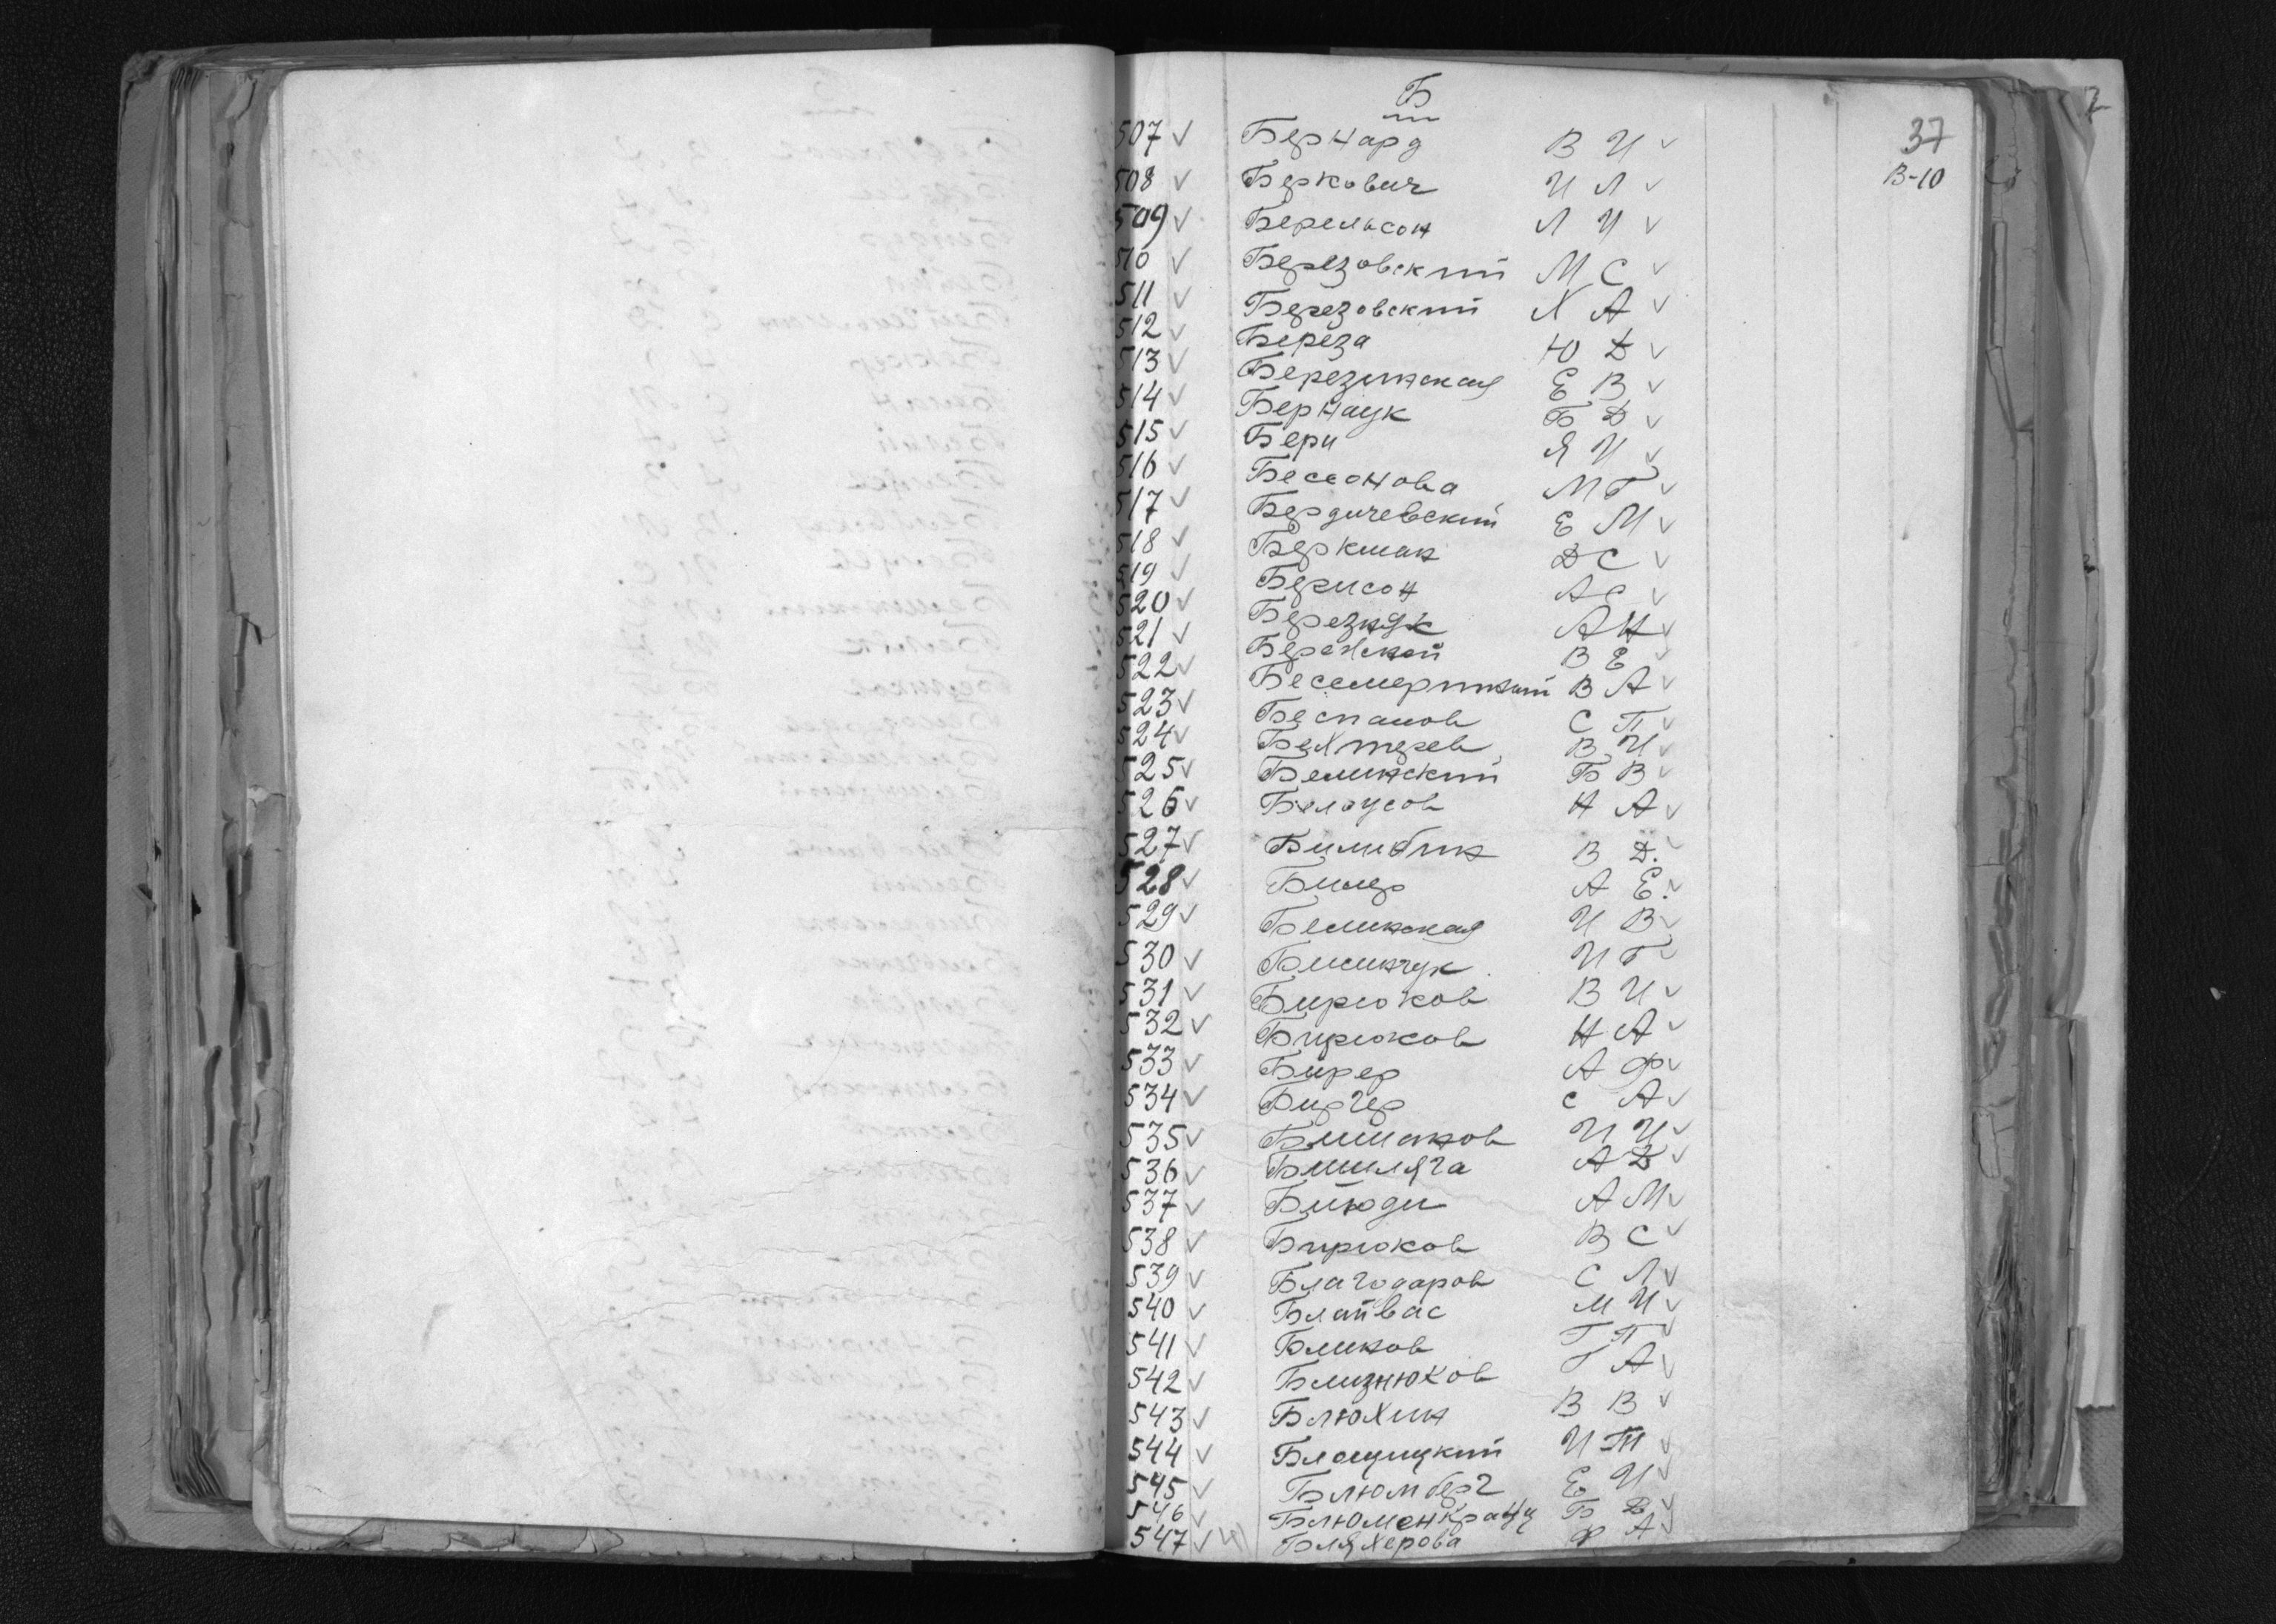 Б
37
В-10
507 ✓ Бернард В И ✓
508 ✓ Беркович И Л ✓
509 ✓ Берельсон Л И ✓
510 ✓ Березовский М С ✓
511 ✓ Березовский Х А ✓
512 ✓ Береза Ю Д ✓
513 ✓ Березинская Е В ✓
514 ✓ Бернацк Б Д ✓
515 ✓ Бери Я И ✓
516 ✓ Бессонова М Г ✓
517 ✓ Бердичевский Е М ✓
518 ✓ Беркман Д С ✓
519 ✓ Берисон А С ✓
520 ✓ А Н ✓
521 ✓ Бережной В Е ✓
522 ✓ В А ✓
523 ✓ Беспалов С П ✓
524 ✓ Бехтерев В И ✓
525 ✓ Белинский Б В ✓
526 ✓ Белоусов Н А ✓
527 ✓ Билибин В Д. ✓
528 ✓ А Е. ✓
529 ✓ Белинская И В ✓
530 ✓ И Г ✓
531 ✓ Бирюков В И ✓
532 ✓ Бирюков Н А ✓
533 ✓ Бирер А Ф ✓
534 ✓ Биргер С А ✓
535 ✓ И И ✓
536 ✓ Бишляга А Д ✓
537 ✓ Биюди А М ✓
538 ✓ Бирюков В С ✓
539 ✓ Благодаров С Л ✓
540 ✓ Блайвас М И ✓
541 ✓ Блинов Г П ✓
542 ✓ Близнюков Г А ✓
543 ✓ Блюхин В В ✓
544 ✓ Блощицкий И Т ✓
545 ✓ Блюмберг Е И ✓
546 ✓ Блюменкранц Б Д ✓
547 ✓ Бляхерова Ф А ✓